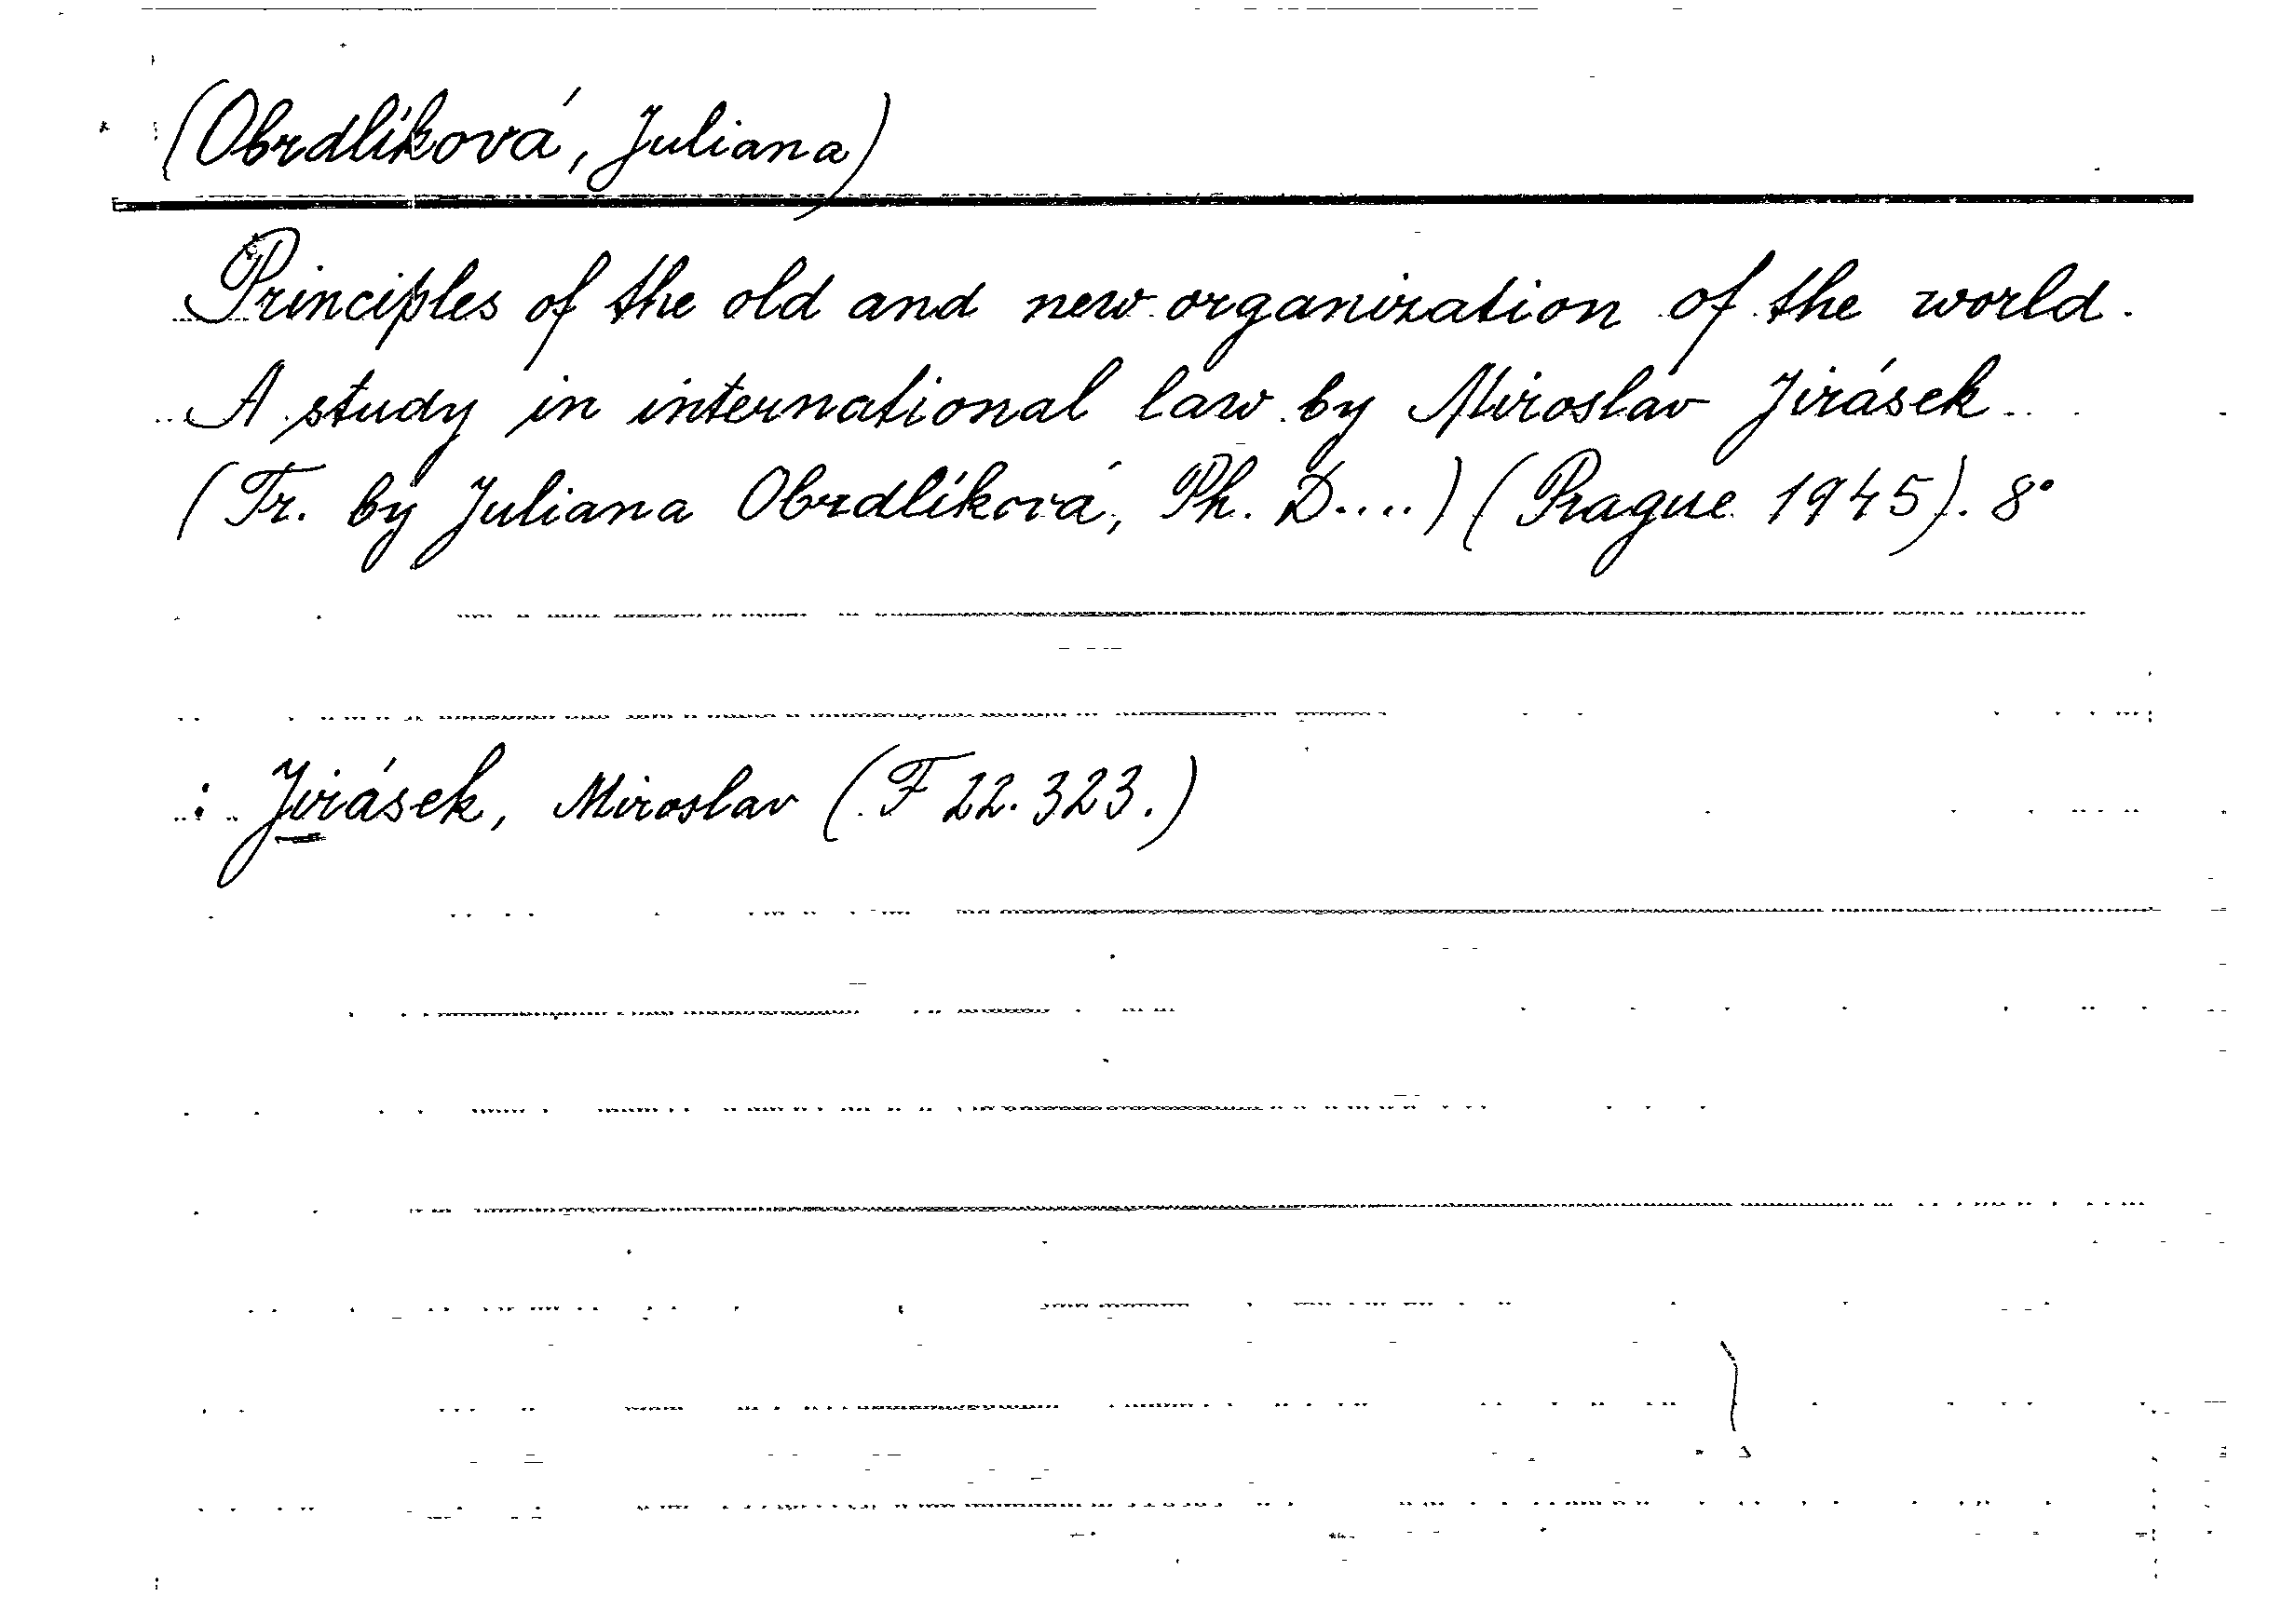 (Obrdlíková, Juliana)
Principles of the old and new organization of the world.
A study in international law by Miroslav Jirásek.
(Tr. by Juliana Obrdlíková, Ph. D....) (Prague 1945). 8°
: Jirásek, Miroslav (F 22.323.)